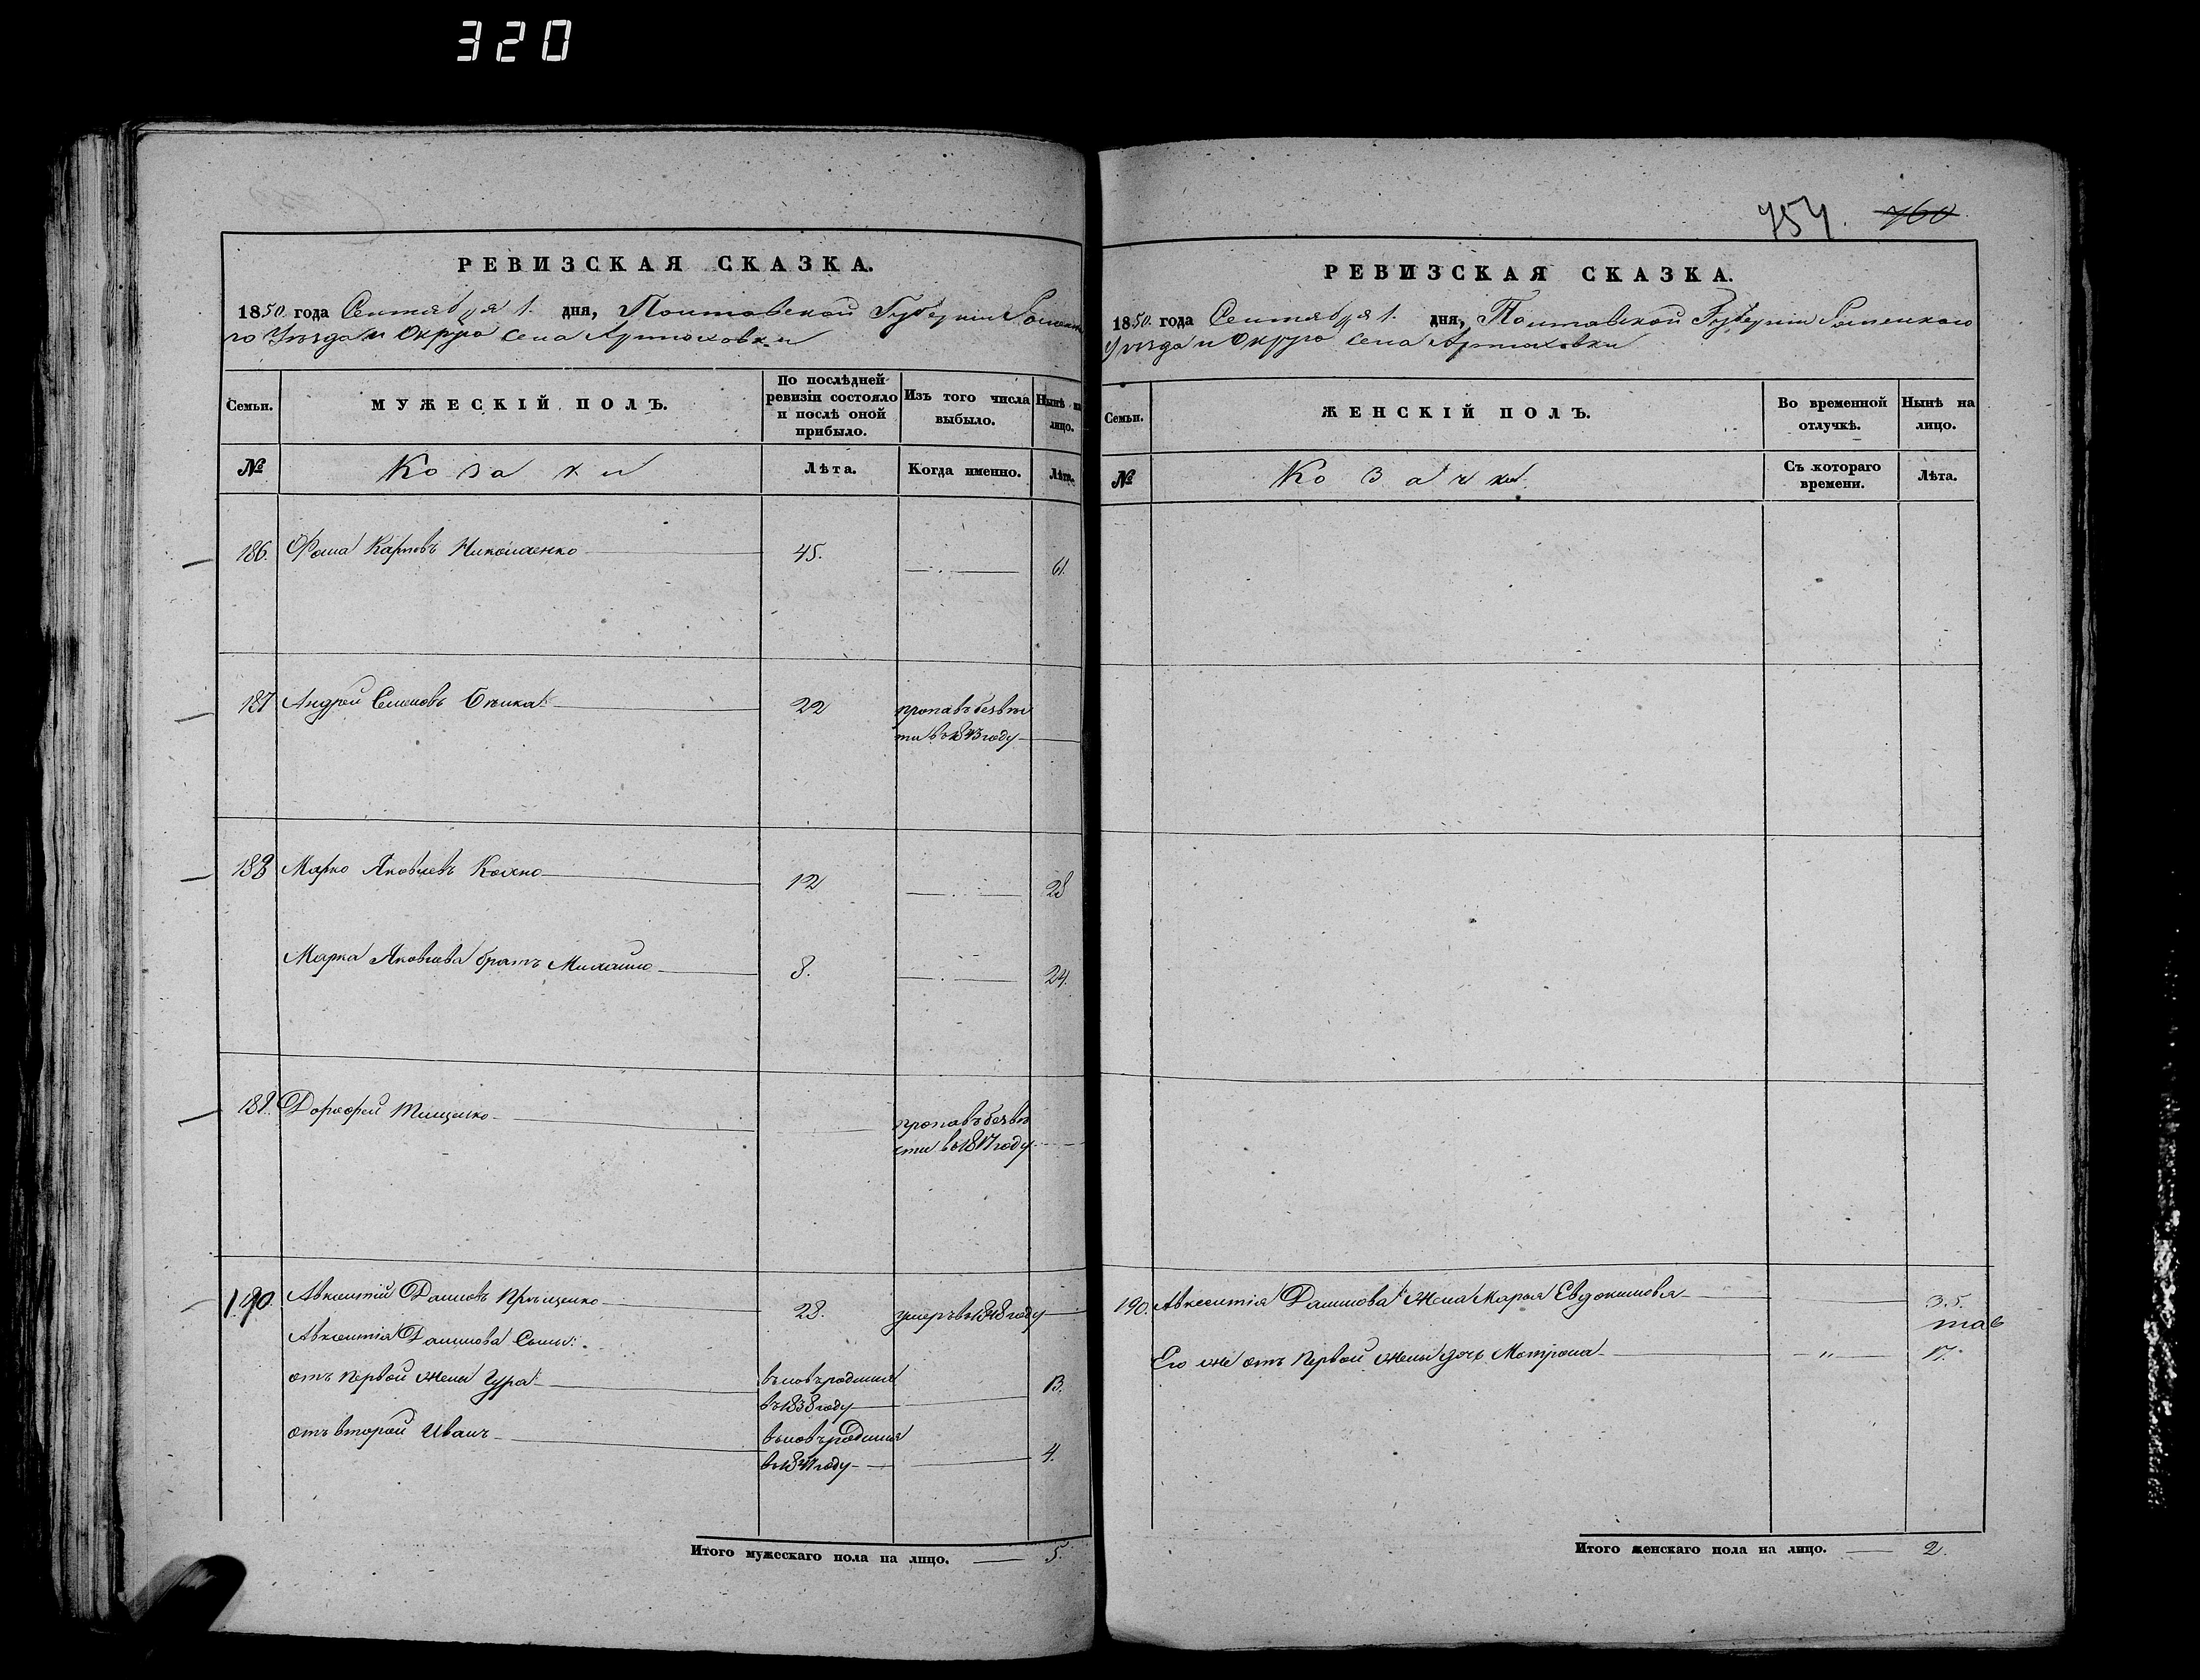 320
754. 760
РЕВИЗСКАЯ СКАЗКА.
1850 года Сентября 1. дня, Полтавской Губерніи Роменска
го Уѣзда и Округа села Артюховки
Семьи.
МУЖЕСКІЙ ПОЛЪ.
По послѣдней
ревизіи состояло
и послѣ оной
прибыло.
Изъ того числа
выбыло.
Нынѣ на
лицо.
№
Козаки
Лѣта.
Когда именно.
Лѣта.
186. Фома Карповъ Николаенко 45. 61.
187 Андрей Семеновъ 22 пропавъ безвѣс
ти въ 1843 году
188 Марко Яковлевъ Кохно 12 28
Марка Яковлева братъ Михайло 8. 24.
189. Дорофей Тищенко пропавъ безвѣ
сти въ 1817 году
190. Авксентій Даниловъ 28. умеръ въ 1848 году
Авксентія Данилова Сыны:
отъ первой жены Гура вновь родился 13.
въ 1838 году
отъ второй Иванъ вновь родился 4.
въ 1847 году
Итого мужескаго пола на лицо. 5.
РЕВИЗСКАЯ СКАЗКА.
1850 года Сентября 1. дня, Полтавской Губерніи Роменскаго
Уѣзда и Округа села Артюховки
Семьи.
ЖЕНСКІЙ ПОЛЪ.
Во временной
отлучкѣ.
Нынѣ на
лицо.
№
Козачки
Съ котораго
времени.
Лѣта.
190. Авксентія Данилова жена Марья Евдокимова 35.
Его же отъ первой жены дочь Мотрона " 17.
Итого женскаго пола на лицо. 2.